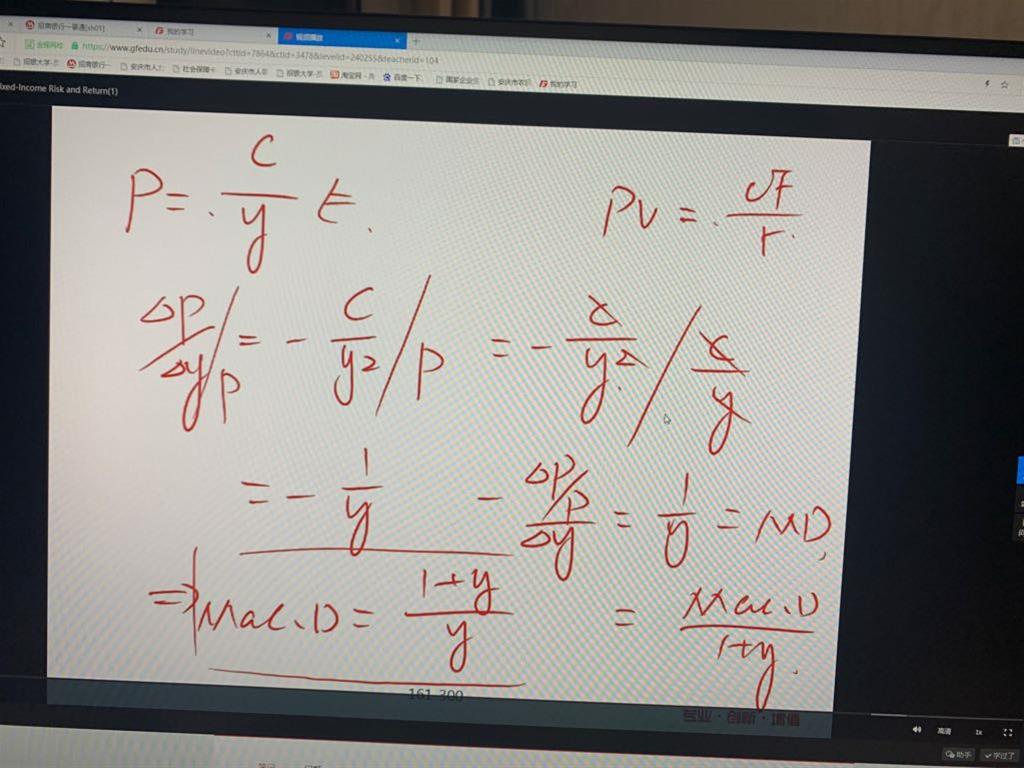 招商银行一事通[sh01] 我的学习 视频播放
https://www.gfedu.cn/study/linevideo?cttid=7864&ctid=3478&levelid=240255&teacherid=104
招银大学 招商银行 安庆市人力 社会保障卡 安庆市人 招银大学 淘宝网 百度一下 国家企业信 安庆市农 我的学习
ixed-Income Risk and Return(1)
P = C/y t. PV = CF/r
ΔP/Δy / P = - C/y² / P = - C/y² / C/y
= - 1/y - ΔP/P / Δy = 1/y = MD,
⇒ Mac.D = 1+y/y = Mac.D/1+y.
161-300
专业·创新·增值
高清 1x
助手 学过了